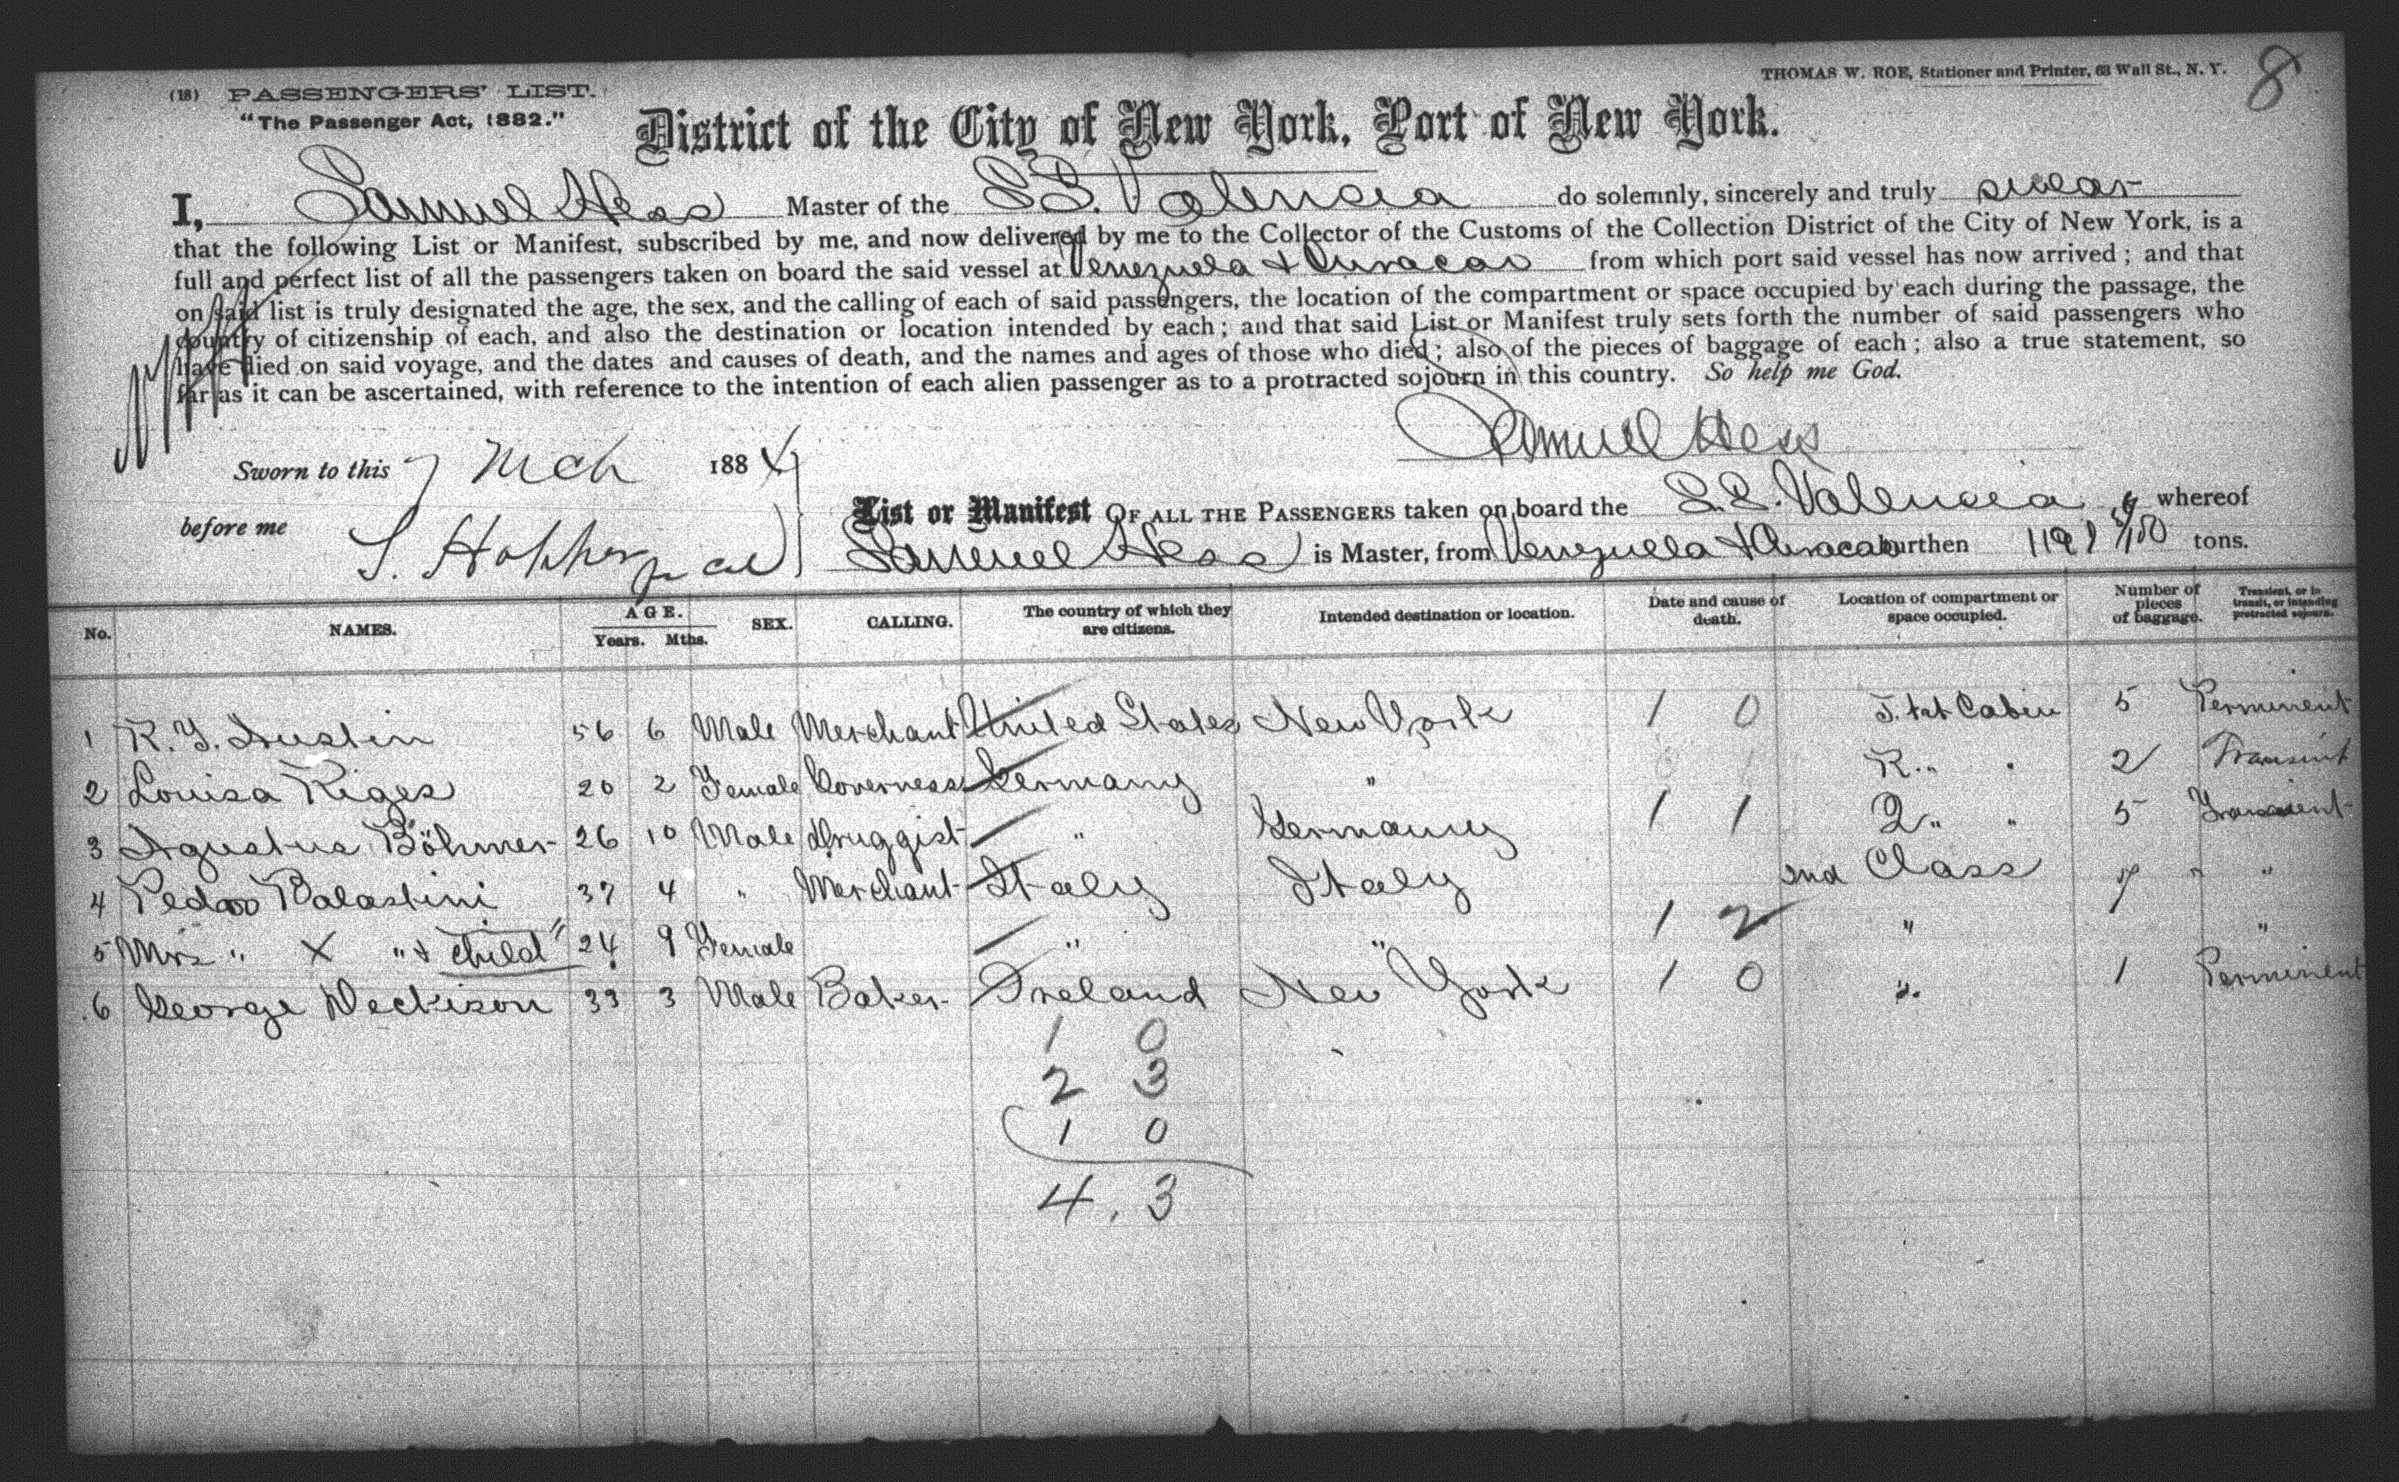 (18) PASSENGERS' LIST. THOMAS W. ROE, Stationer and Printer, 63 Wall St., N. Y. 8
"The Passenger Act, 1882."
District of the City of New York, Port of New York.
I, Samuel Hess Master of the S.S. Valencia do solemnly, sincerely and truly swear
that the following List or Manifest, subscribed by me, and now delivered by me to the Collector of the Customs of the Collection District of the City of New York, is a
full and perfect list of all the passengers taken on board the said vessel at Venezuela + Curacao from which port said vessel has now arrived; and that
on said list is truly designated the age, the sex, and the calling of each of said passengers, the location of the compartment or space occupied by each during the passage, the
country of citizenship of each, and also the destination or location intended by each; and that said List or Manifest truly sets forth the number of said passengers who
have died on said voyage, and the dates and causes of death, and the names and ages of those who died; also of the pieces of baggage of each; also a true statement, so
far as it can be ascertained, with reference to the intention of each alien passenger as to a protracted sojourn in this country. So help me God.
Samuel Hess
Sworn to this 7 Mch 1884
before me
List or Manifest OF ALL THE PASSENGERS taken on board the S.S. Valencia whereof
Samuel Hess is Master, from Venezuela + Curacao burthen tons.
No. NAMES. AGE. Years. Mths. SEX. CALLING. The country of which they are citizens. Intended destination or location. Date and cause of death. Location of compartment or space occupied. Number of pieces of baggage. Transient, or in transit, or intending protracted sojourn.
1 R. Y. Austin 56 6 Male Merchant United States New York 1 0 Cabin 5 Perminent
2 Louisa Riges 20 2 Female Governess Germany " R. " " 2 Transint
3 Agustus Böhmer 26 10 Male druggist " Germany 1 1 2 " " 5 Transient
4 Pedro Balastini 37 4 " Merchant Italy Italy 2nd Class "
5 Mrs " X " + child" 24 9 Female " " 1 2 " "
6 George Deckison 33 3 Male Baker Ireland New York 1 0 " 1 Perminent
1 0
2 3
1 0
4. 3